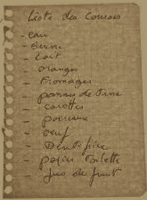 Liste des Courses
- eau
- beurre
- Lait
- oranges
- Fromages
- pommes de Terre
- carottes
- poireaux
- oeuf
- Dentifrice
- papier Toilette
- Jus de fruit